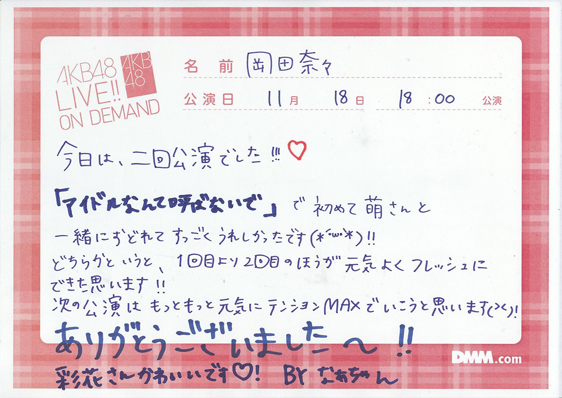 AKB48
LIVE!!
ON DEMAND
AKB
48
名前 岡田奈々
公演日 11月 18日 18:00 公演
今日は、二回公演でした!!!♡
「アイドルなんて呼ばないで」で初めて萌さんと
一緒におどれてすっごくうれしかったです(*´ω`*)!!
どちらかというと、1回目より2回目のほうが元気よくフレッシュに
できた思います!!
次の公演はもっともっと元気にテンションMAXでいこうと思います(>く)!
ありがとうございました〜!!
DMM.com
彩花さんかわいいです♡! BY なぁちゃん